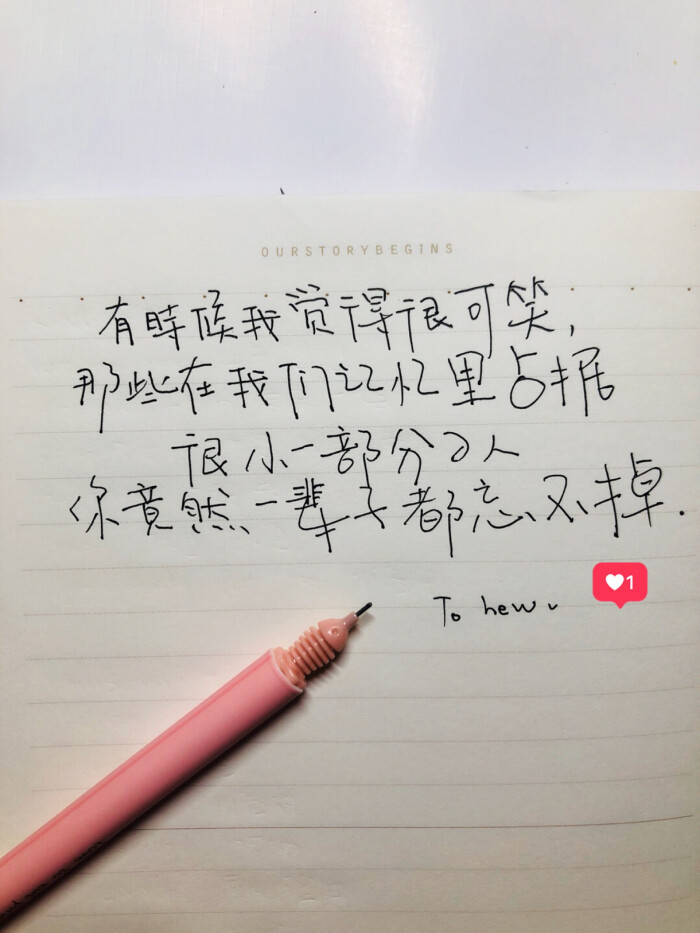 OURSTORYBEGINS
有時候我觉得很可笑,
那些在我们记忆里占据
很小一部分的人
你竟然一辈子都忘不掉.
To hew
1